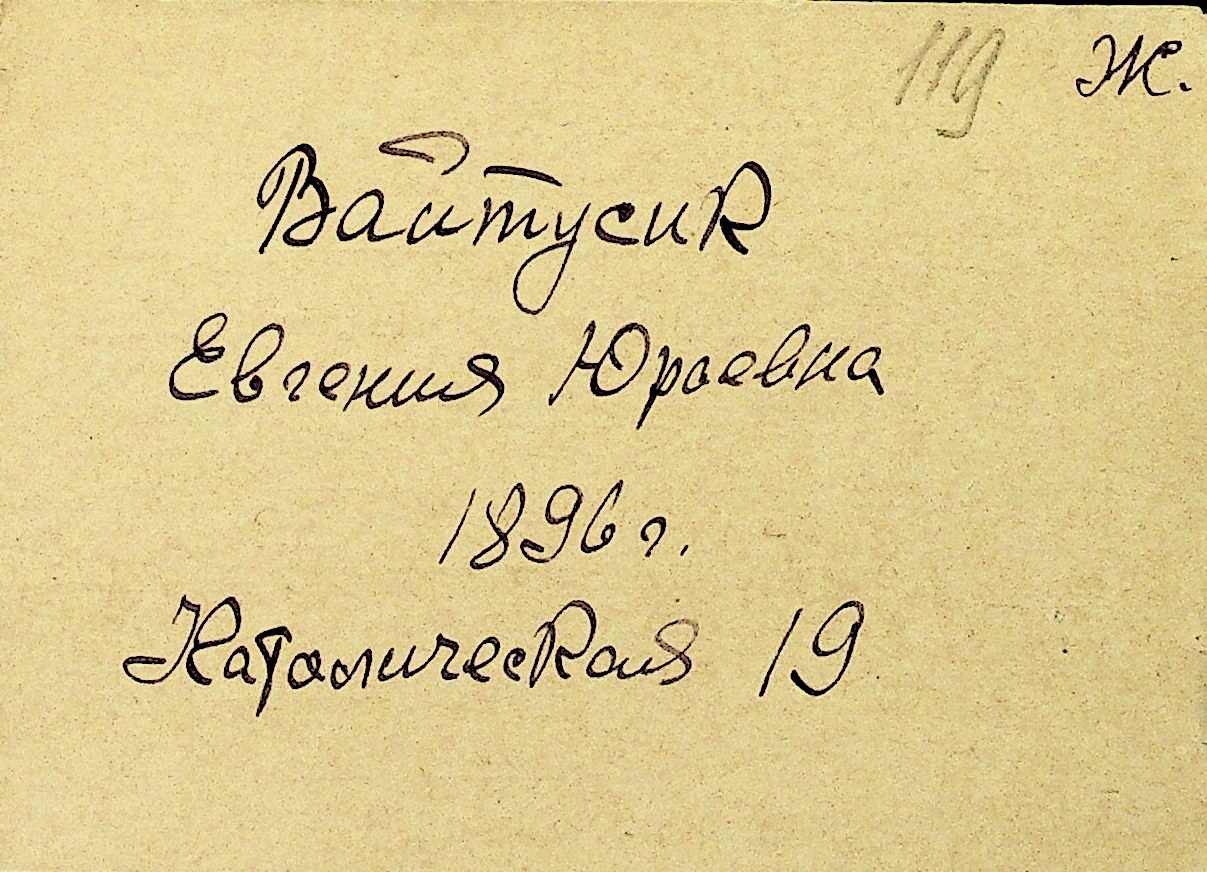 119 Ж.
Вайтусик
Евгения Юрьевна
1896 г.
Католическая 19